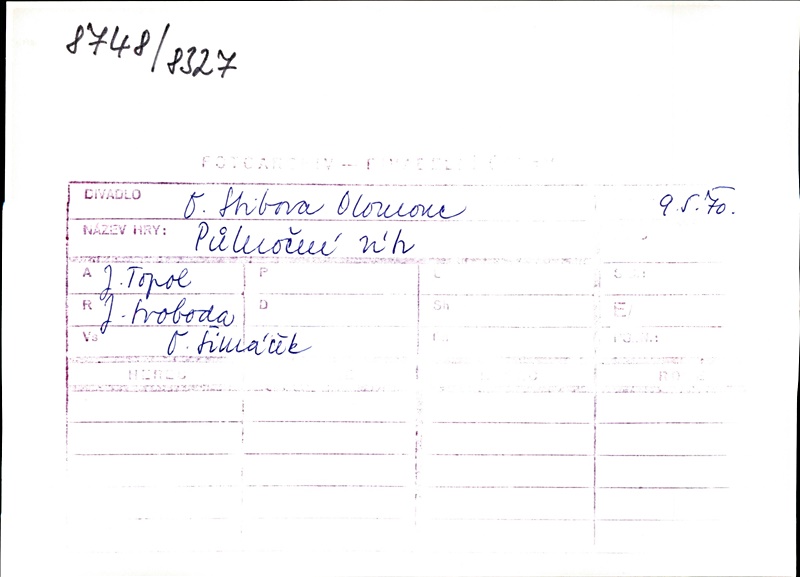 8748/8327
DIVADLO O. Stibora Olomouc 9.5.70.
NÁZEV HRY: Půlnoční vítr
A J. Topol P
R J. Svoboda D Sh
Vs O. Šimáček